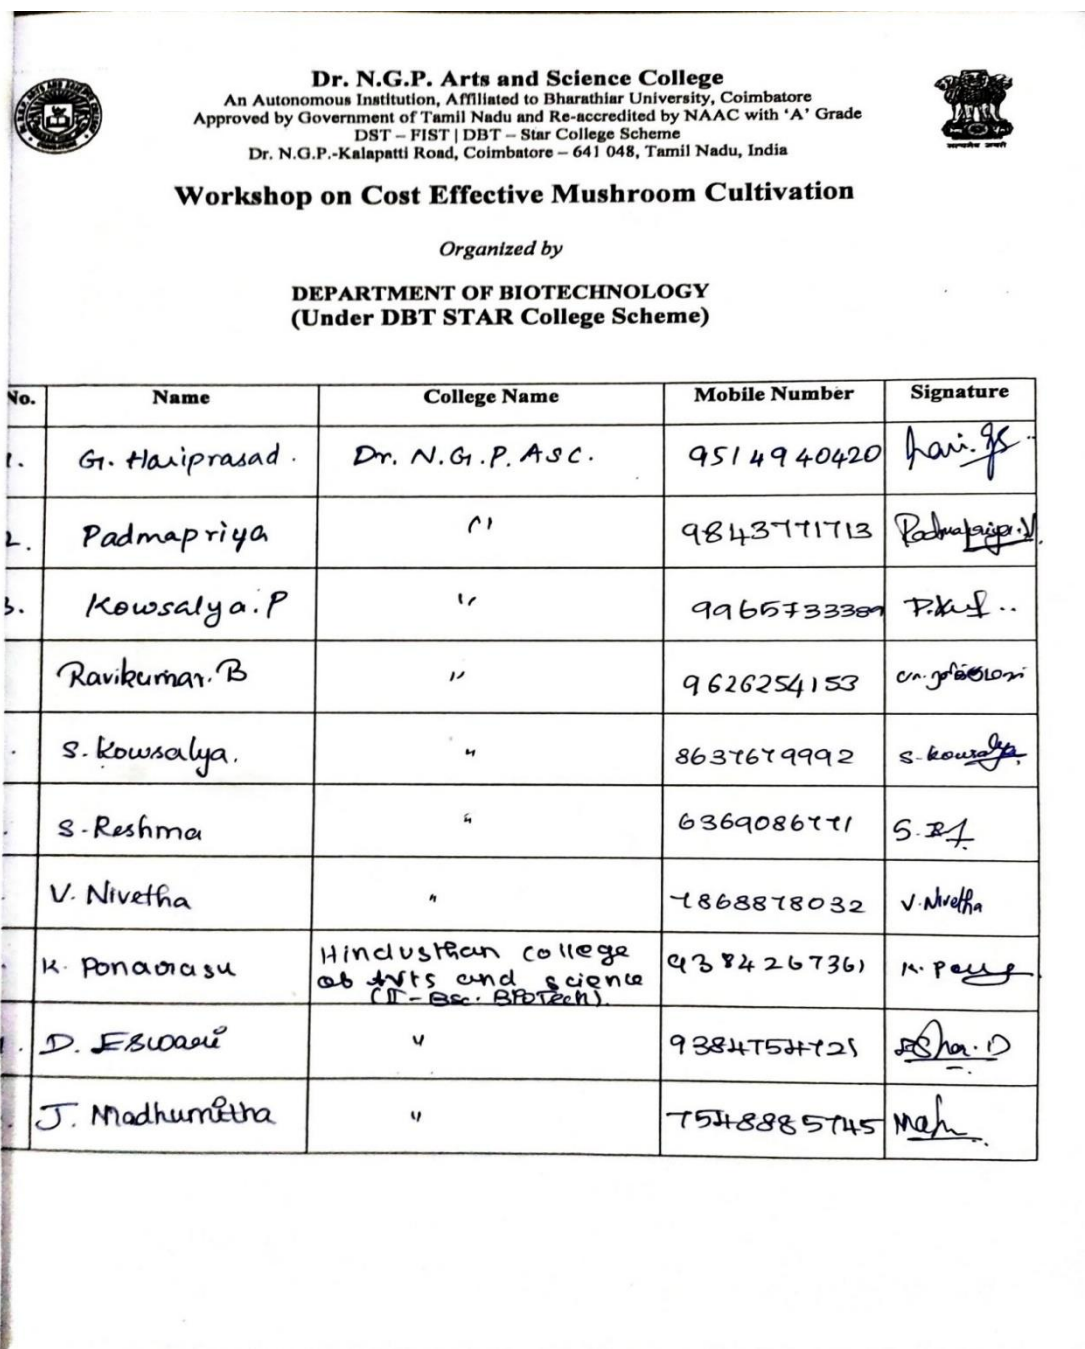 Dr. N.G.P. Arts and Science College
An Autonomous Institution, Affiliated to Bharathiar University, Coimbatore
Approved by Government of Tamil Nadu and Re-accredited by NAAC with 'A' Grade
DST – FIST | DBT – Star College Scheme
Dr. N.G.P.-Kalapatti Road, Coimbatore – 641 048, Tamil Nadu, India
सत्यमेव जयते
Workshop on Cost Effective Mushroom Cultivation
Organized by
DEPARTMENT OF BIOTECHNOLOGY
(Under DBT STAR College Scheme)
No. Name College Name Mobile Number Signature
1. G. Hariprasad. Dr. N.G.P. ASC. 9514940420 hari.gs
2. Padmapriya " 9843771713 Padmapriya.V
3. Kowsalya.P " 9965733389
Ravikumar.B " 9626254153
S. Kowsalya. " 8637679992 S. Kowsalya
S. Reshma " 6369086771
V. Nivetha " 7868878032 V. Nivetha
K. Ponarasu Hindusthan college 9384267361
of Arts and science
(II - BSc. BIOTech).
D. Eswari " 9384754725
J. Madhumitha " 7548885745